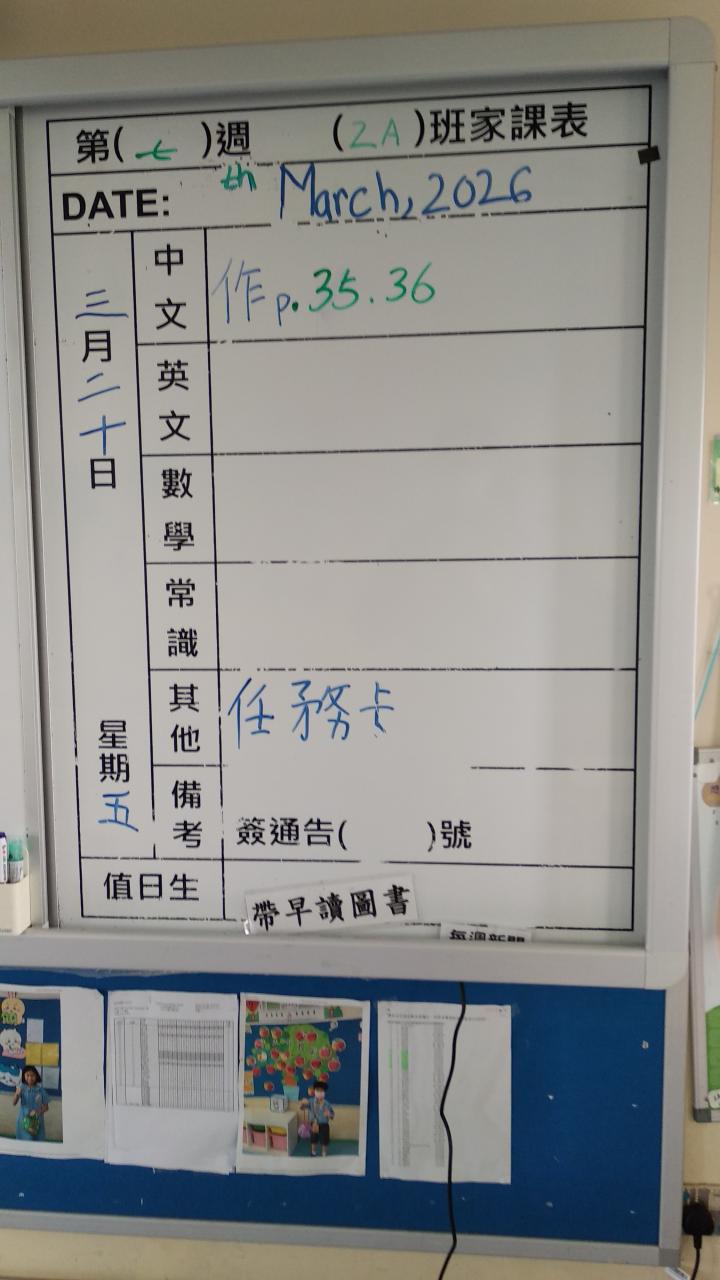 第(七)週 (2A)班家課表
DATE: th March, 2026
三月二十日
星期五
中文 作p.35.36
英文
數學
常識
其他 任務卡
備考 簽通告( )號
值日生
帶早讀圖書
每週新聞